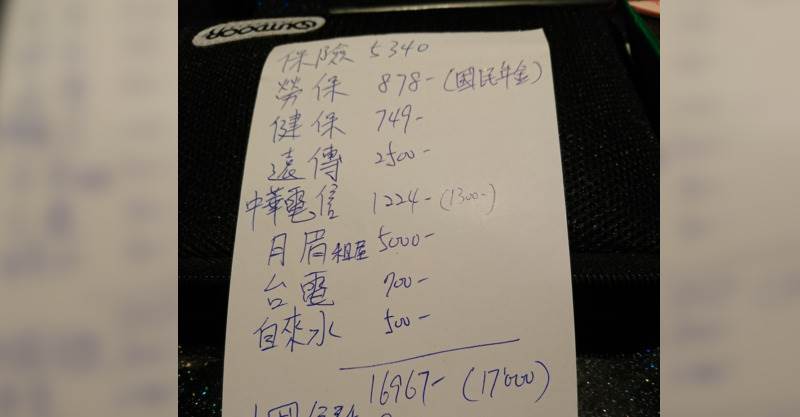 OUTDOOR
保險 5340
勞保 878- (國民年金)
健保 749-
遠傳 2500-
中華電信 1224- (1300-)
月眉租屋 5000-
台電 700-
自來水 500-
16967- (17'000)